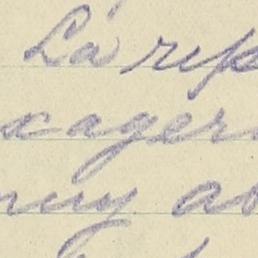 La rep
xager
muy ab